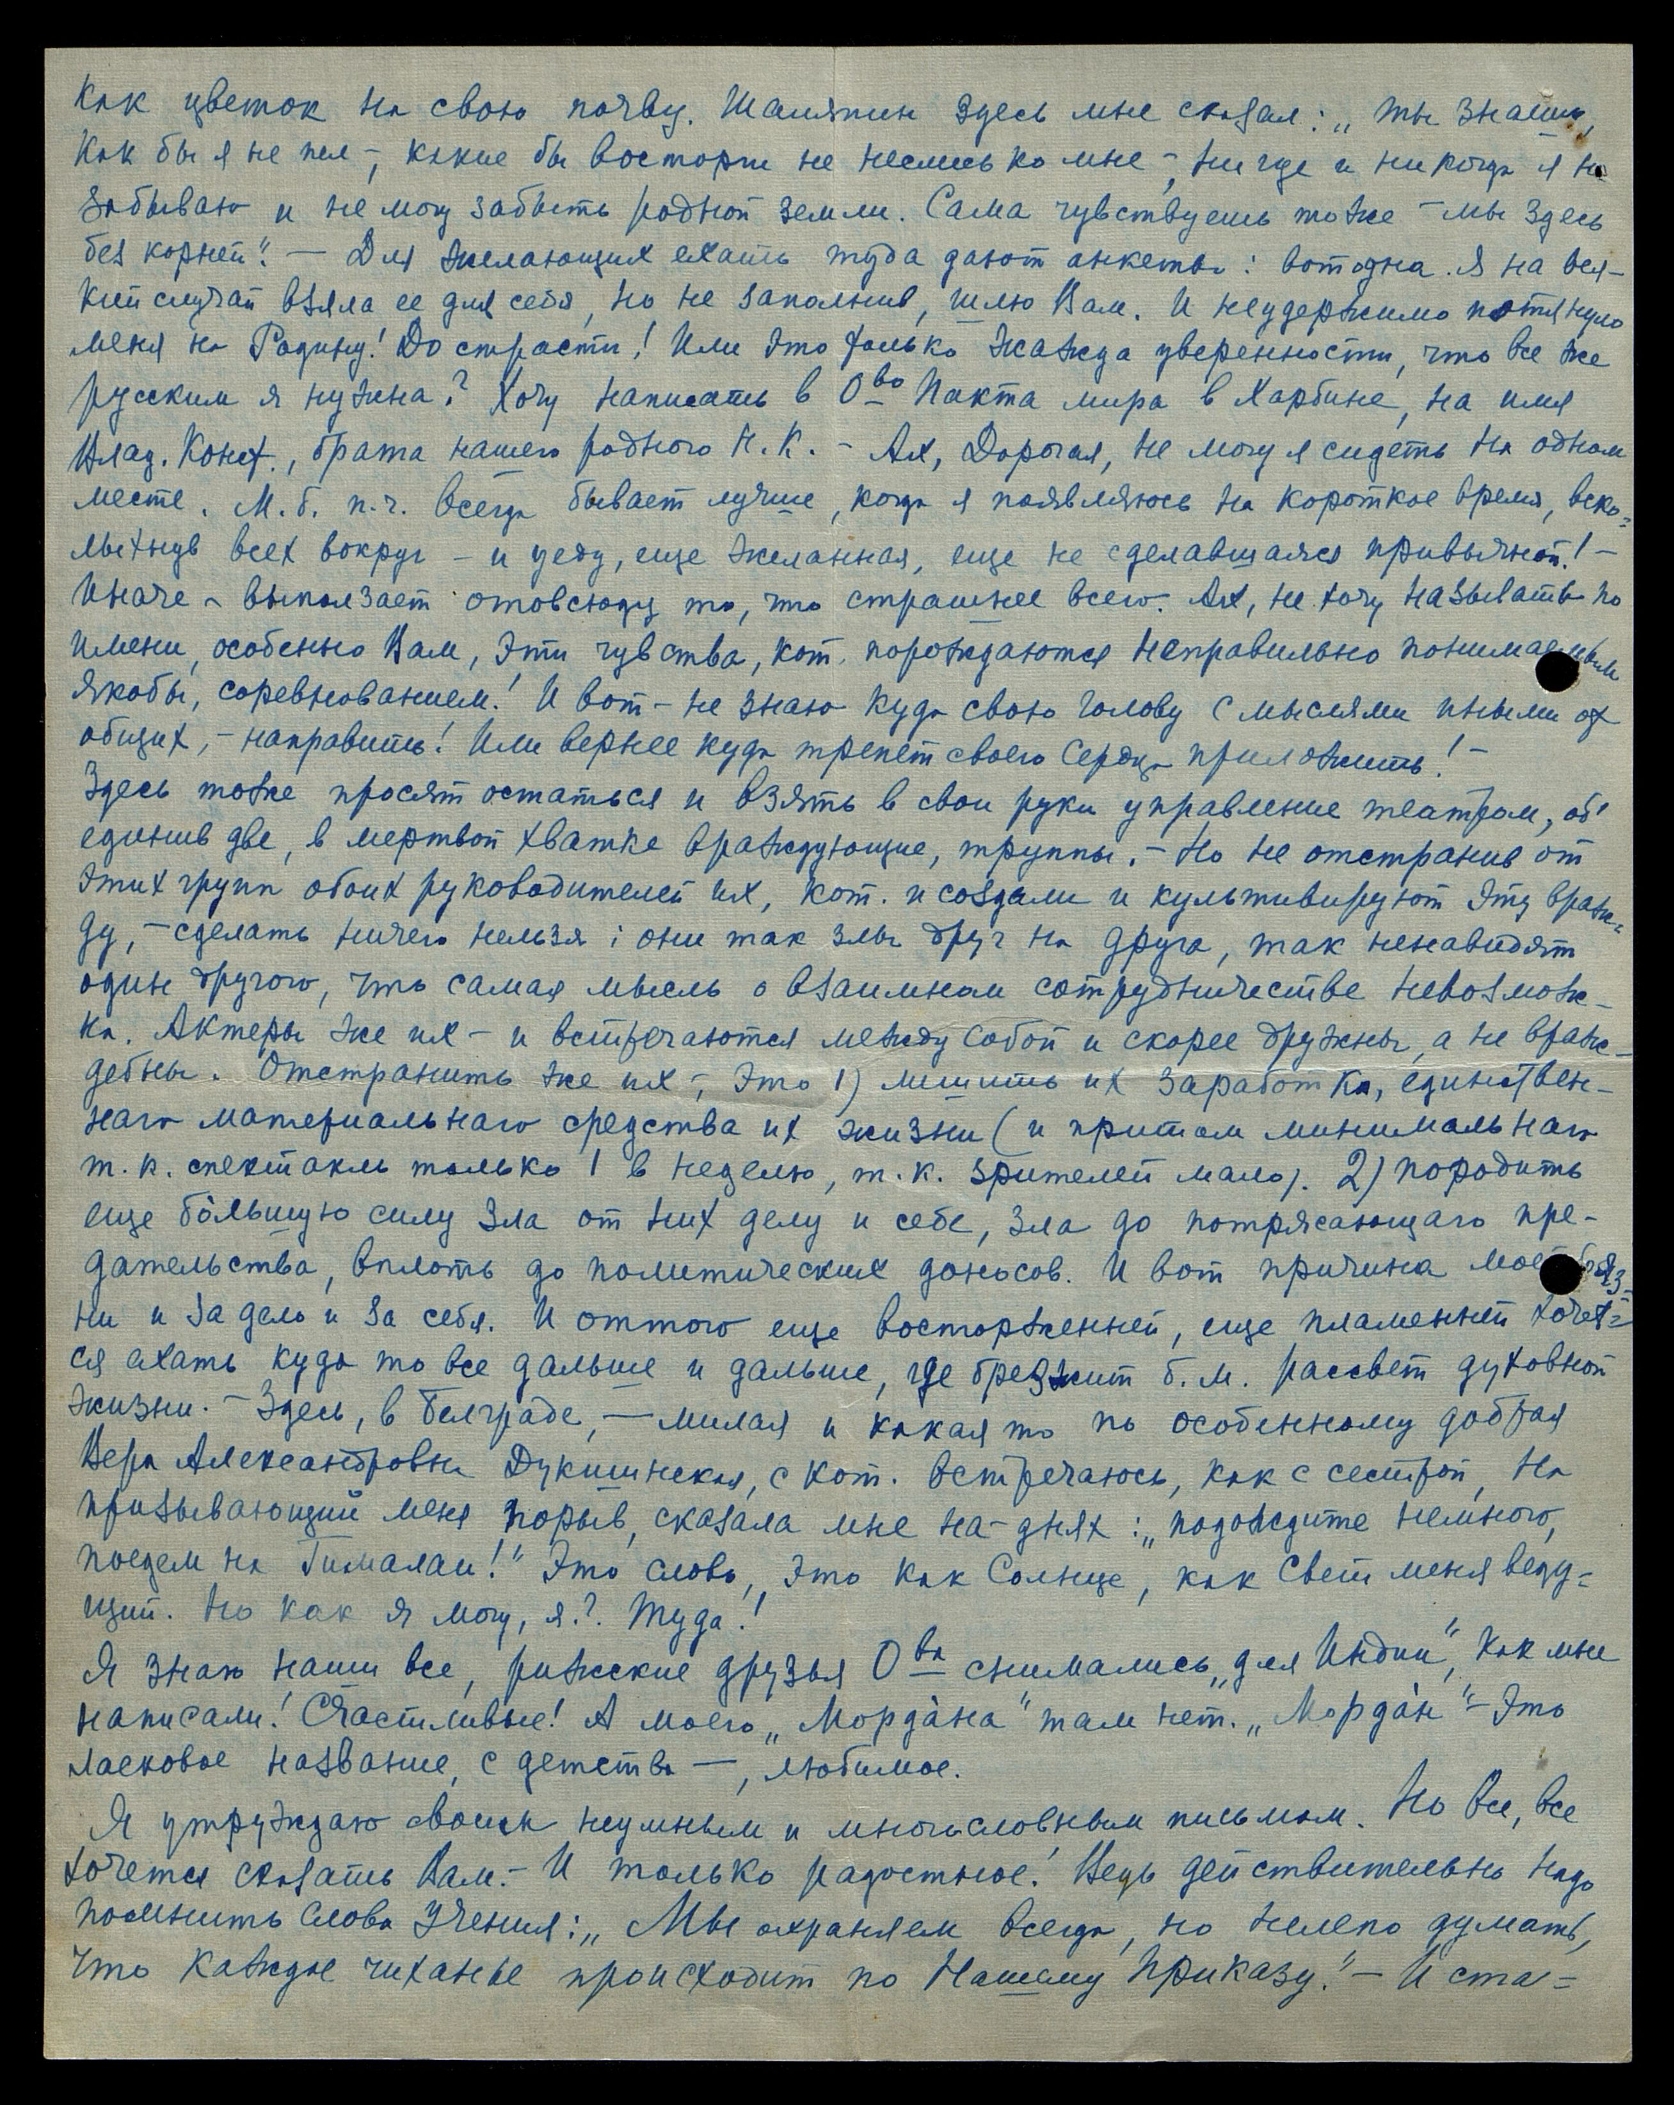 как цветок на свою почву. Шаляпин здесь мне сказал: „ты знаешь,
как бы я не пел –, какие бы восторги не неслись ко мне –, нигде и никогда я не
забываю и не могу забыть родной земли. Сама чувствуешь тоже – мы здесь
без корней". – Для желающих ехать туда дают анкеты: вот одна. Я на вся-
кий случай взяла ее для себя, но не заполнив, шлю Вам. И неудержимо потянуло
меня на Родину! До страсти! Или это только жажда уверенности, что все же
русским я нужна? Хочу написать в О-во Пакта мира в Харбине, на имя
Влад. Конст., брата нашего родного Н.К. – Ах, Дорогая, не могу я сидеть на одном
месте. М.б. п.ч. всегда бывает лучше, когда я появляюсь на короткое время, вско=
лыхнув всех вокруг – и уеду, еще желанная, еще не сделавшаяся привычной! –
Иначе – выползает отовсюду то, что страшнее всего. Ах, не хочу называть по
имени, особенно Вам, эти чувства, кот. порождаются неправильно понимаемым
якобы, соревнованием! И вот – не знаю куда свою голову с мыслями иными от
общих, – направить! Или вернее куда трепет своего Сердца приложить! –
Здесь тоже просят остаться и взять в свои руки управление театром, об'
единив две, в мертвой хватке враждующие, труппы. – Но не отстранив от
этих групп обоих руководителей их, кот. и создали и культивируют эту враж-
ду, – сделать ничего нельзя: они так злы друг на друга, так ненавидят
один другого, что самая мысль о взаимном сотрудничестве невозмож-
на. Актеры же их – и встречаются между собой и скорее дружны, а не враж-
дебны. Отстранить же их –, это 1) лишить их заработка, единствен-
наго матерьальнаго средства их жизни (и притом минимальнаго
т.к. спектакль только 1 в неделю, т.к. зрителей мало). 2) породить
еще бо́льшую силу зла от них делу и себе, зла до потрясающаго пре-
дательства, вплоть до политических доносов. И вот причина моей бояз-
ни и за дело и за себя. И оттого еще восторженней, еще пламенней хочет=
ся ехать куда то все дальше и дальше, где брезжит б.м. рассвет духовной
жизни. – Здесь, в Белграде, – милая и какая то по особенному добрая
Вера Александровна Дукшинская, с кот. встречаюсь, как с сестрой, на
призывающий меня порыв, сказала мне на-днях: „подождите немного,
поедем на Гималаи!" Это слово, это как Солнце, как Свет меня веду=
щий. Но как я могу, я?. Туда!
Я знаю наши все, рижские друзья О-ва снимались „для Индии", как мне
написали! Счастливые! А моего „Морда́на" там нет. „Морда́н" – это
ласковое название, с детства –, любимое.
Я утруждаю своим неумным и многословным письмом. Но все, все
хочется сказать Вам. – И только радостное! Ведь действительно надо
помнить слова Учения: „Мы охраняем всегда, но нелепо думать,
что каждое чиханье происходит по Нашему Приказу." – И ста=